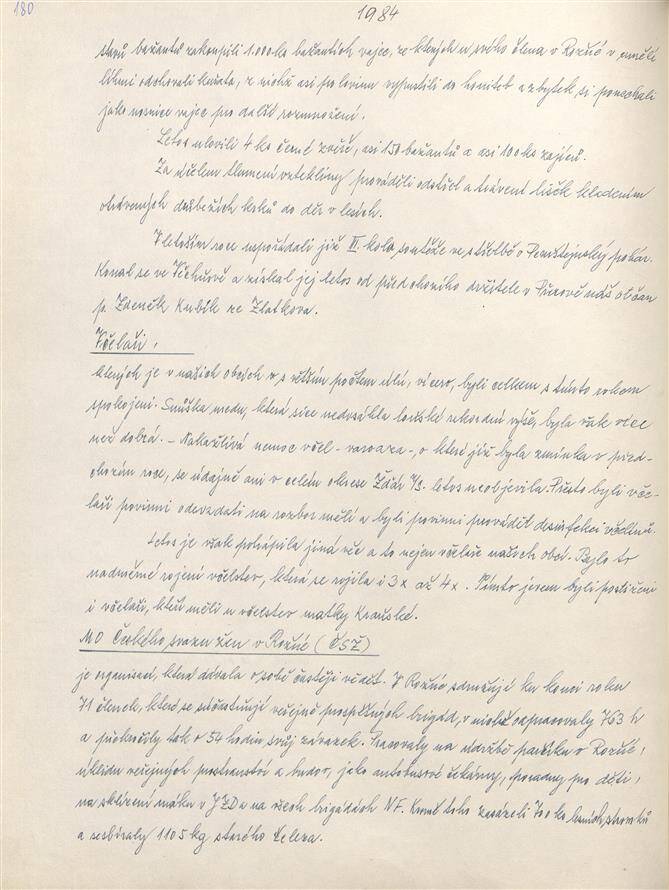 180
1984
stavů bažantů zakoupili 1.000 ks bažantích vajec, ze kterých u svého člena v Rožné v umělé
líhni odchovali kuřata, z nichž asi polovinu vypustili do honiteb a zbytek si ponechali
jako nosnice vajec pro další rozmnožení.
Letos ulovili 4 ks černé zvěře, asi 150 bažantů a asi 100 ks zajíců.
Za účelem tlumení vztekliny prováděli odstřel a trávení lišek kladením
otrávených drůbežích krků do děr v lesích.
V letošním roce uspořádali již II. kolo soutěže ve střelbě o Pernštejnský pohár.
Konal se ve Věchnově a získal jej letos od předchozího držitele v Písečně náš občan
p. Zdeněk Kubík ze Zlatkova.
Včelaři,
kterých je v našich obcích s větším počtem úlů, vícero, byli celkem s tímto rokem
spokojeni. Snůška medu, která sice nedosáhla loňské rekordní výše, byla však více
než dobrá. - Nakažlivá nemoc včel - varoaza -, o které již byla zmínka v před-
chozím roce, se údajně ani v celém okrese Žďár n/S. letos neobjevila. Přesto byli vče-
laři povinni odevzdati na rozbor mělí a byli povinni provádět desinfekci včelínů.
Letos je však potrápila jiná věc a to nejen včelaře našich obcí. Bylo to
nadměrné rojení včelstev, která se rojila i 3x až 4x. Tímto jevem byli postiženi
i včelaři, kteří měli u včelstev matky Kraňské.
MO Českého svazu žen v Rožné (ČSŽ)
je organisací, která dávala o sobě častěji vědět. V Rožné sdružují ku konci roku
71 členek, které se súčastňují veřejně prospěšných brigád, v nichž odpracovaly 763 h
a překročily tak o 54 hodin svůj závazek. Pracovaly na údržbě parčíku v Rožné,
úklidu veřejných prostranství a budov, jako autobusové čekárny, poradny pro děti,
na sklízení máku v JZD a na všech brigádách NF. Kromě toho zasázeli 700 ks lesních stromků
a sesbíraly 1105 kg starého železa.